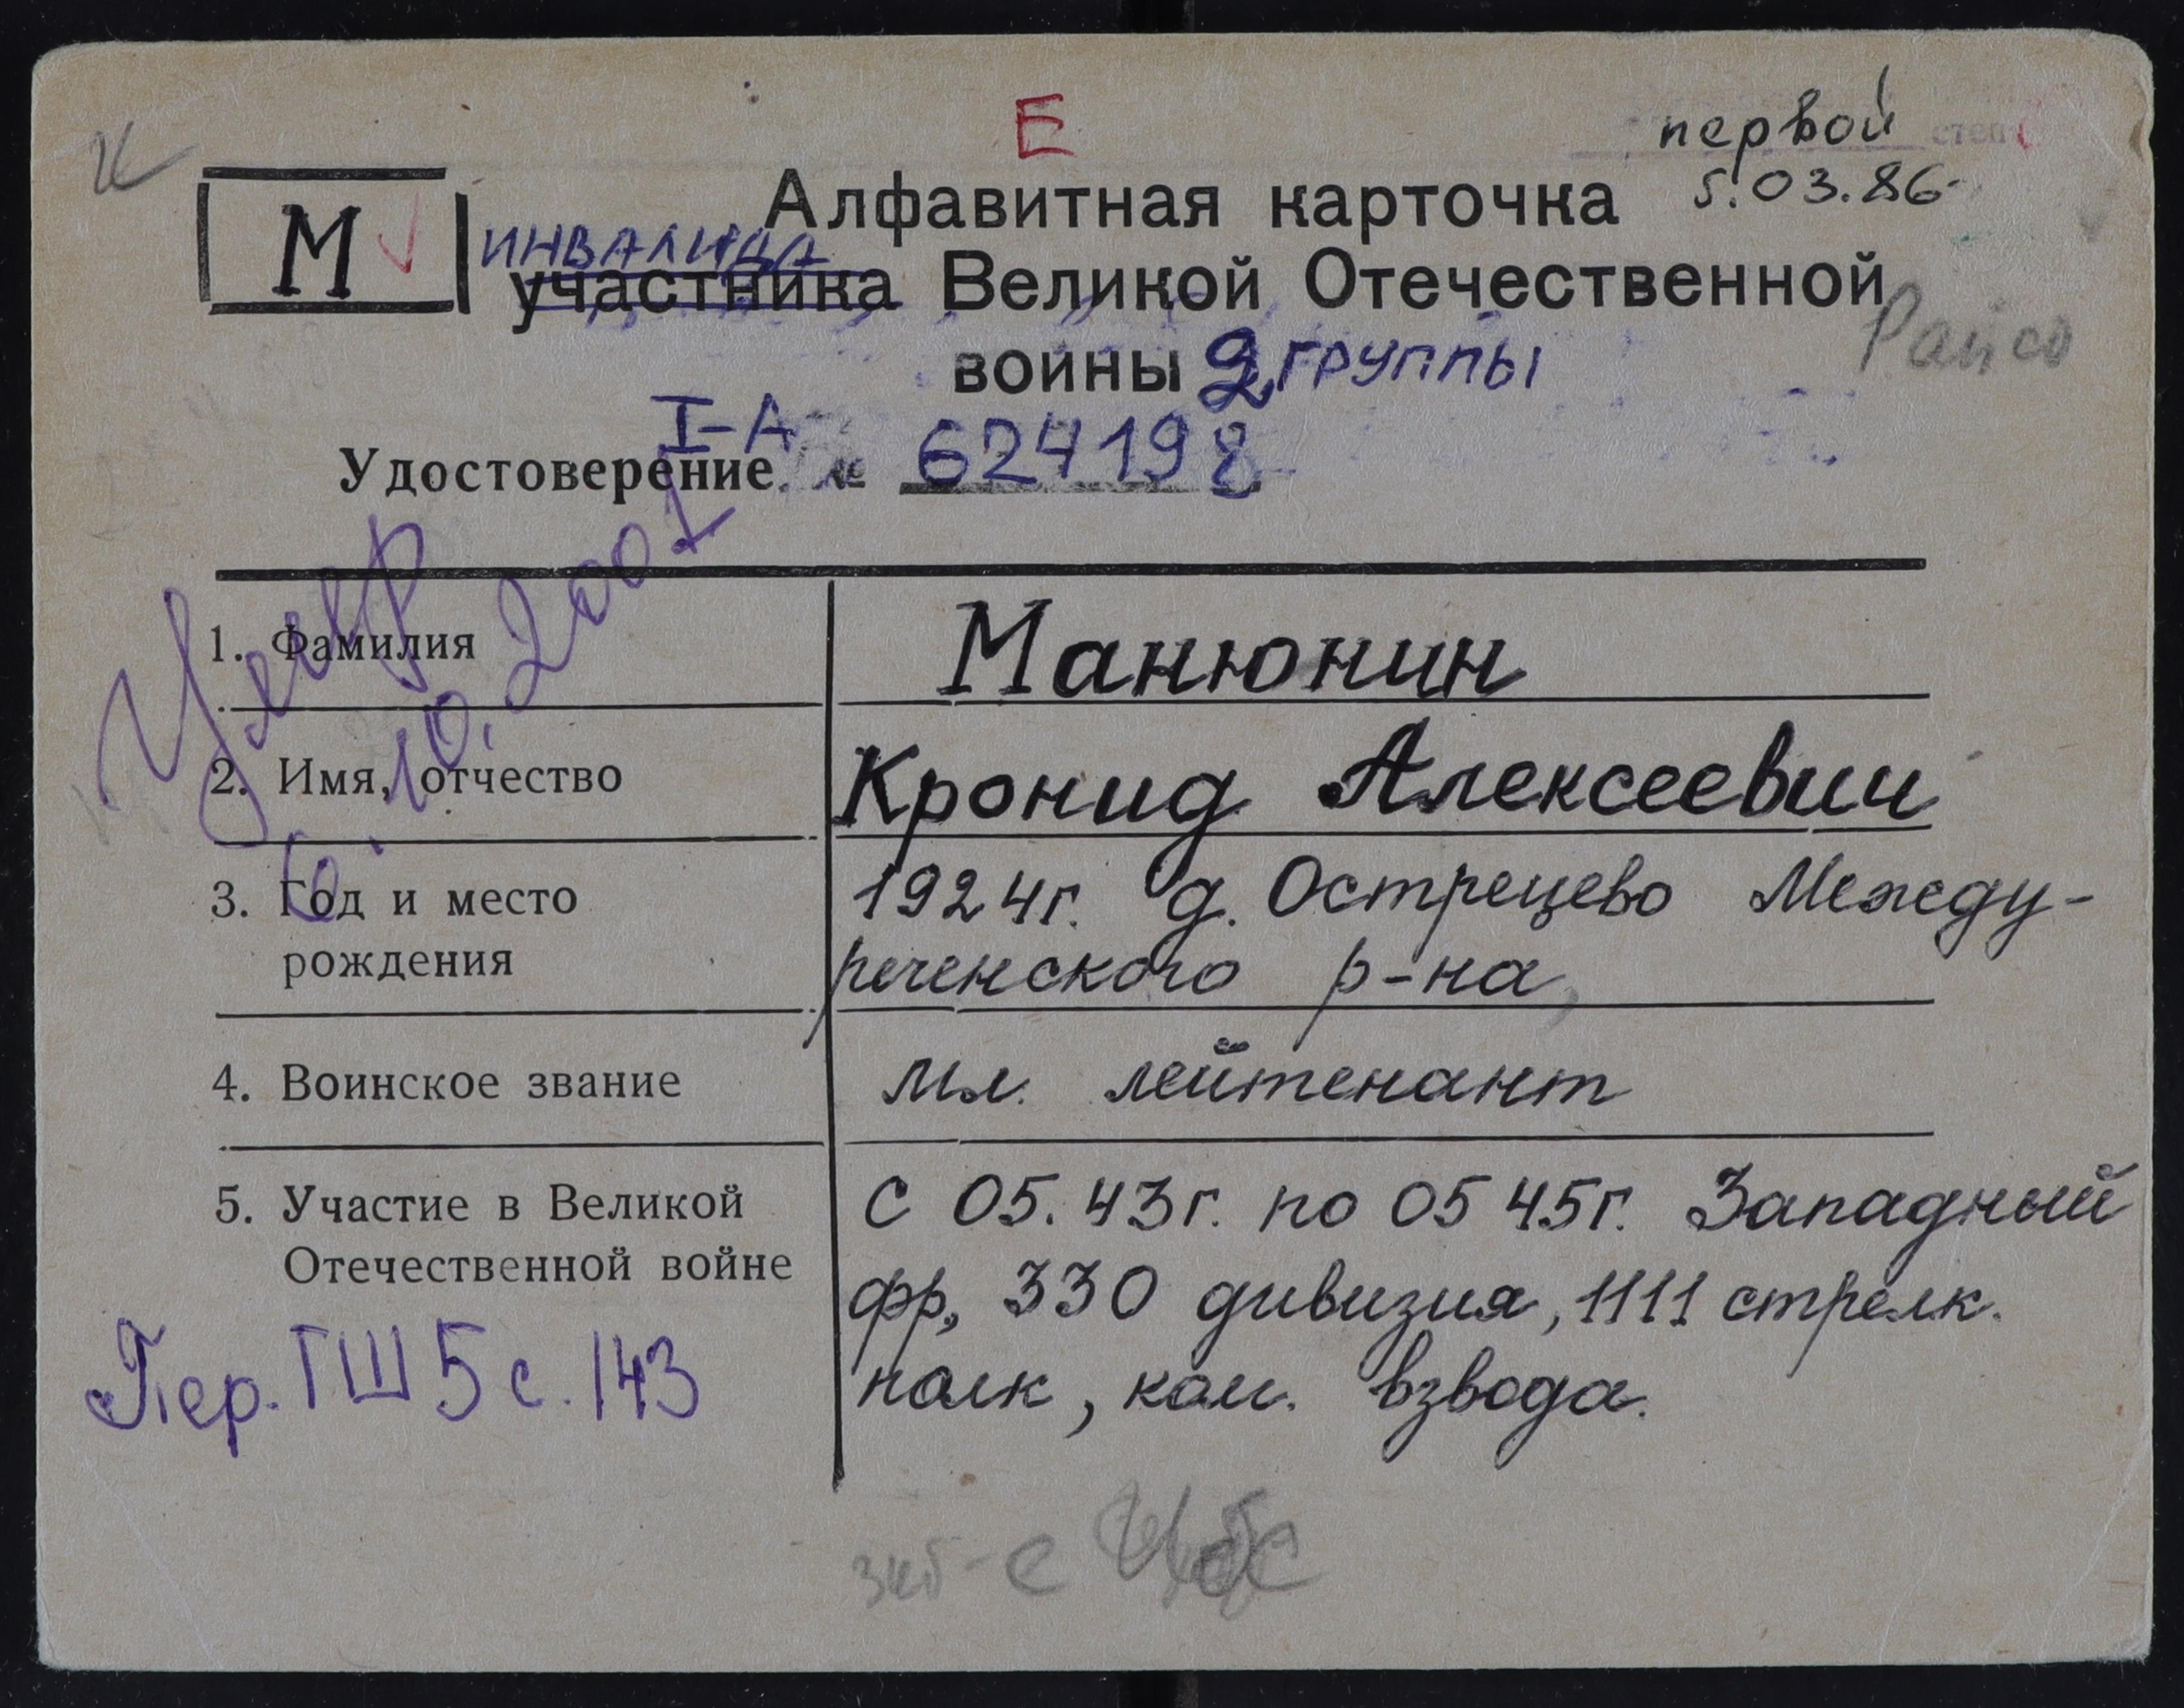 Е
первой
степ
5.03.86
М
Алфавитная карточка
ИНВАЛИДА
участника Великой Отечественной
войны 2 группы
Райсо
I-А
Удостоверение № 624198
Умер
6.10.2001
1. Фамилия
Манюнин
2. Имя, отчество
Кронид Алексеевич
3. Год и место
рождения
1924г. д. Острецево Между-
реченского р-на,
4. Воинское звание
мл. лейтенант
5. Участие в Великой
Отечественной войне
С 05.43г. по 05 45г. Западный
фр, 330 дивизия, 1111 стрелк.
полк, ком. взвода.
Пер. ГШ 5 с. 143